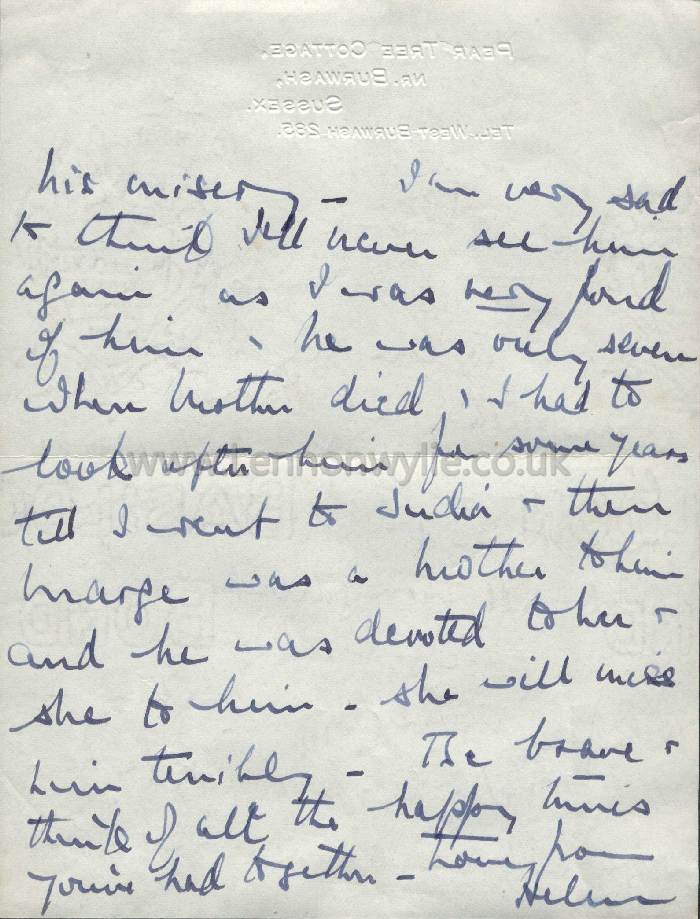 PEAR TREE COTTAGE,
NR. BURWASH,
SUSSEX.
TEL. WEST BURWASH 285.
his misery - I'm very sad
to think I'll never see him
again as I was very fond
of him & he was only seven
when Mother died & I had to
look after him for some years
www.lennonwylie.co.uk
till I went to India & then
Marge was a mother to him
and he was devoted to her &
she to him - she will miss
him terribly - Be brave &
think of all the happy times
you've had together - Love from
Helen